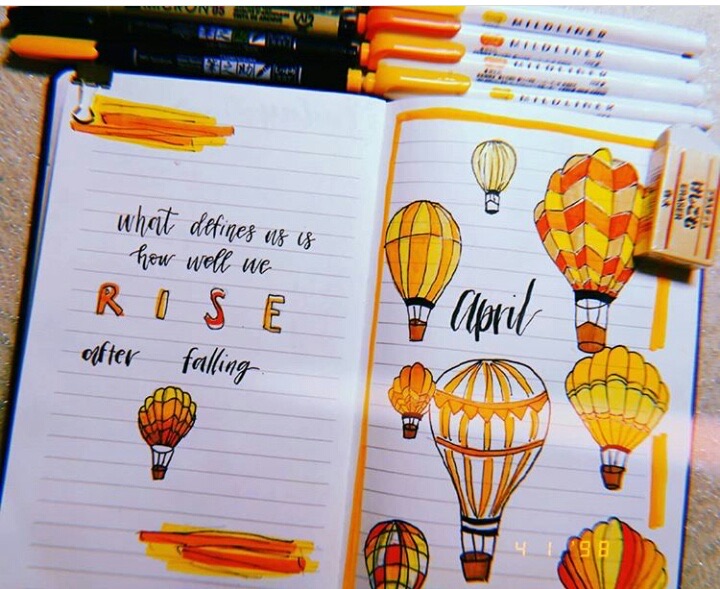 MICRON 05
MILDLINER
MILDLINER
MILDLINER
MILDLINER
ERASER
what defines us is
how well we
RISE
after falling.
April
4 1 '98